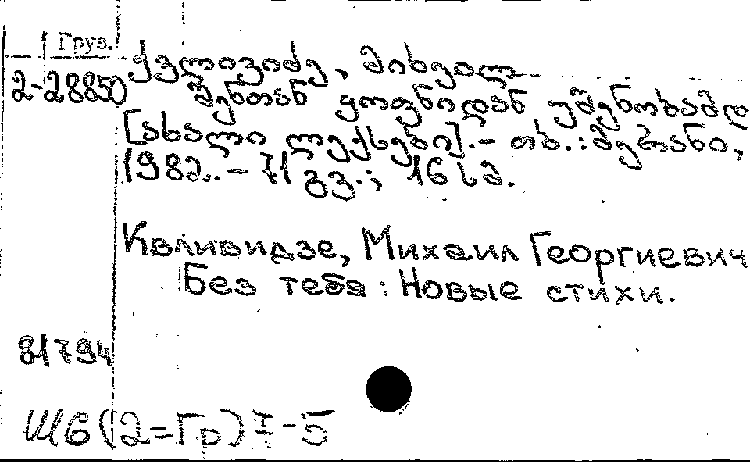 Груз.
ქვლივიძე, მიხეილ
2-28850 შენთან ყოფნიდან უშენობამდ
[ახალი ლექსები].- თბ.: მერანი,
1982.. - 71 გვ.; 16 სმ.
Квливидзе, Михаил Георгиевич
Без тебя: Новые стихи.
81794
Ш6(2=Гр)I-5